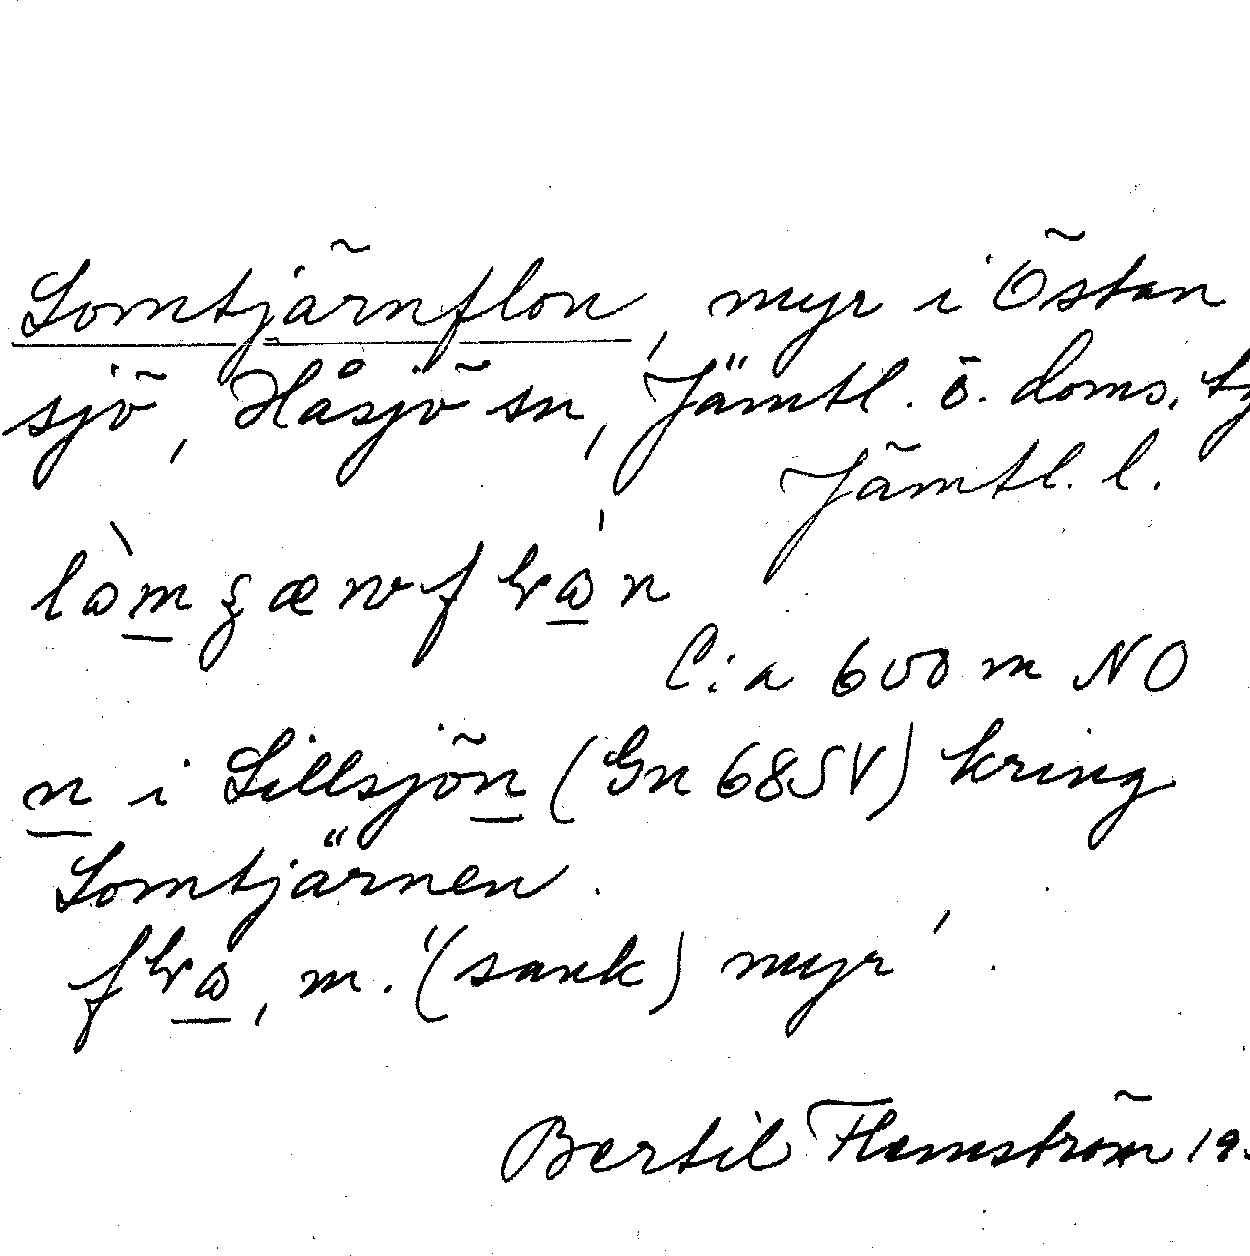 Lomtjärnflon, myr i Östan
sjö, Håsjö sn, Jämtl. ö. doms.
Jämtl. l.
C:a 600 m NO
n i Lillsjön (Gn 68SV) kring
Lomtjärnen.
m. '(sank) myr'.
Bertil Flemström